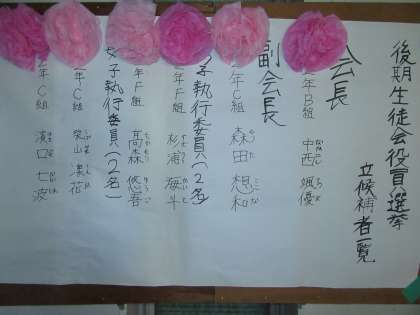 後期生徒会役員選挙
立候補者一覧
会長
年B組 中西 颯優
副会長
年C組 森田 想和
子執行委員(2名)
年F組 杉浦 海斗
年F組 髙森 悠吾
女子執行委員(2名)
年C組 柴山 凛花
年C組 濱口 七波